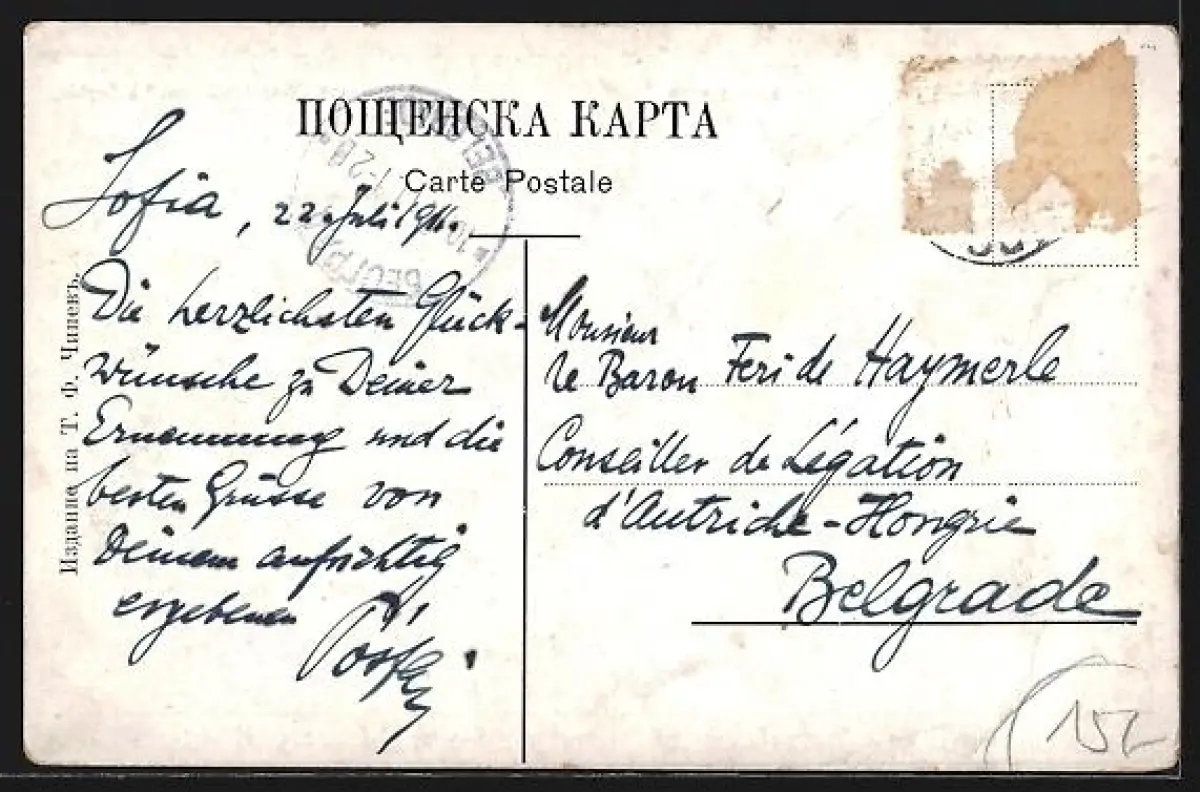 ПОЩЕНСКА КАРТА
Carte Postale
Sofia, 22. Juli 1911.
Die herzlichsten Glück-
wünsche zu Deiner
Ernennung und die
besten Grüsse von
Deinem aufrichtig
ergebenen
Monsieur
le Baron Feri de Haymerle
Conseiller de Légation
d'Autriche-Hongrie
Belgrade
Издание на Т. Ф. Чипевъ.
152